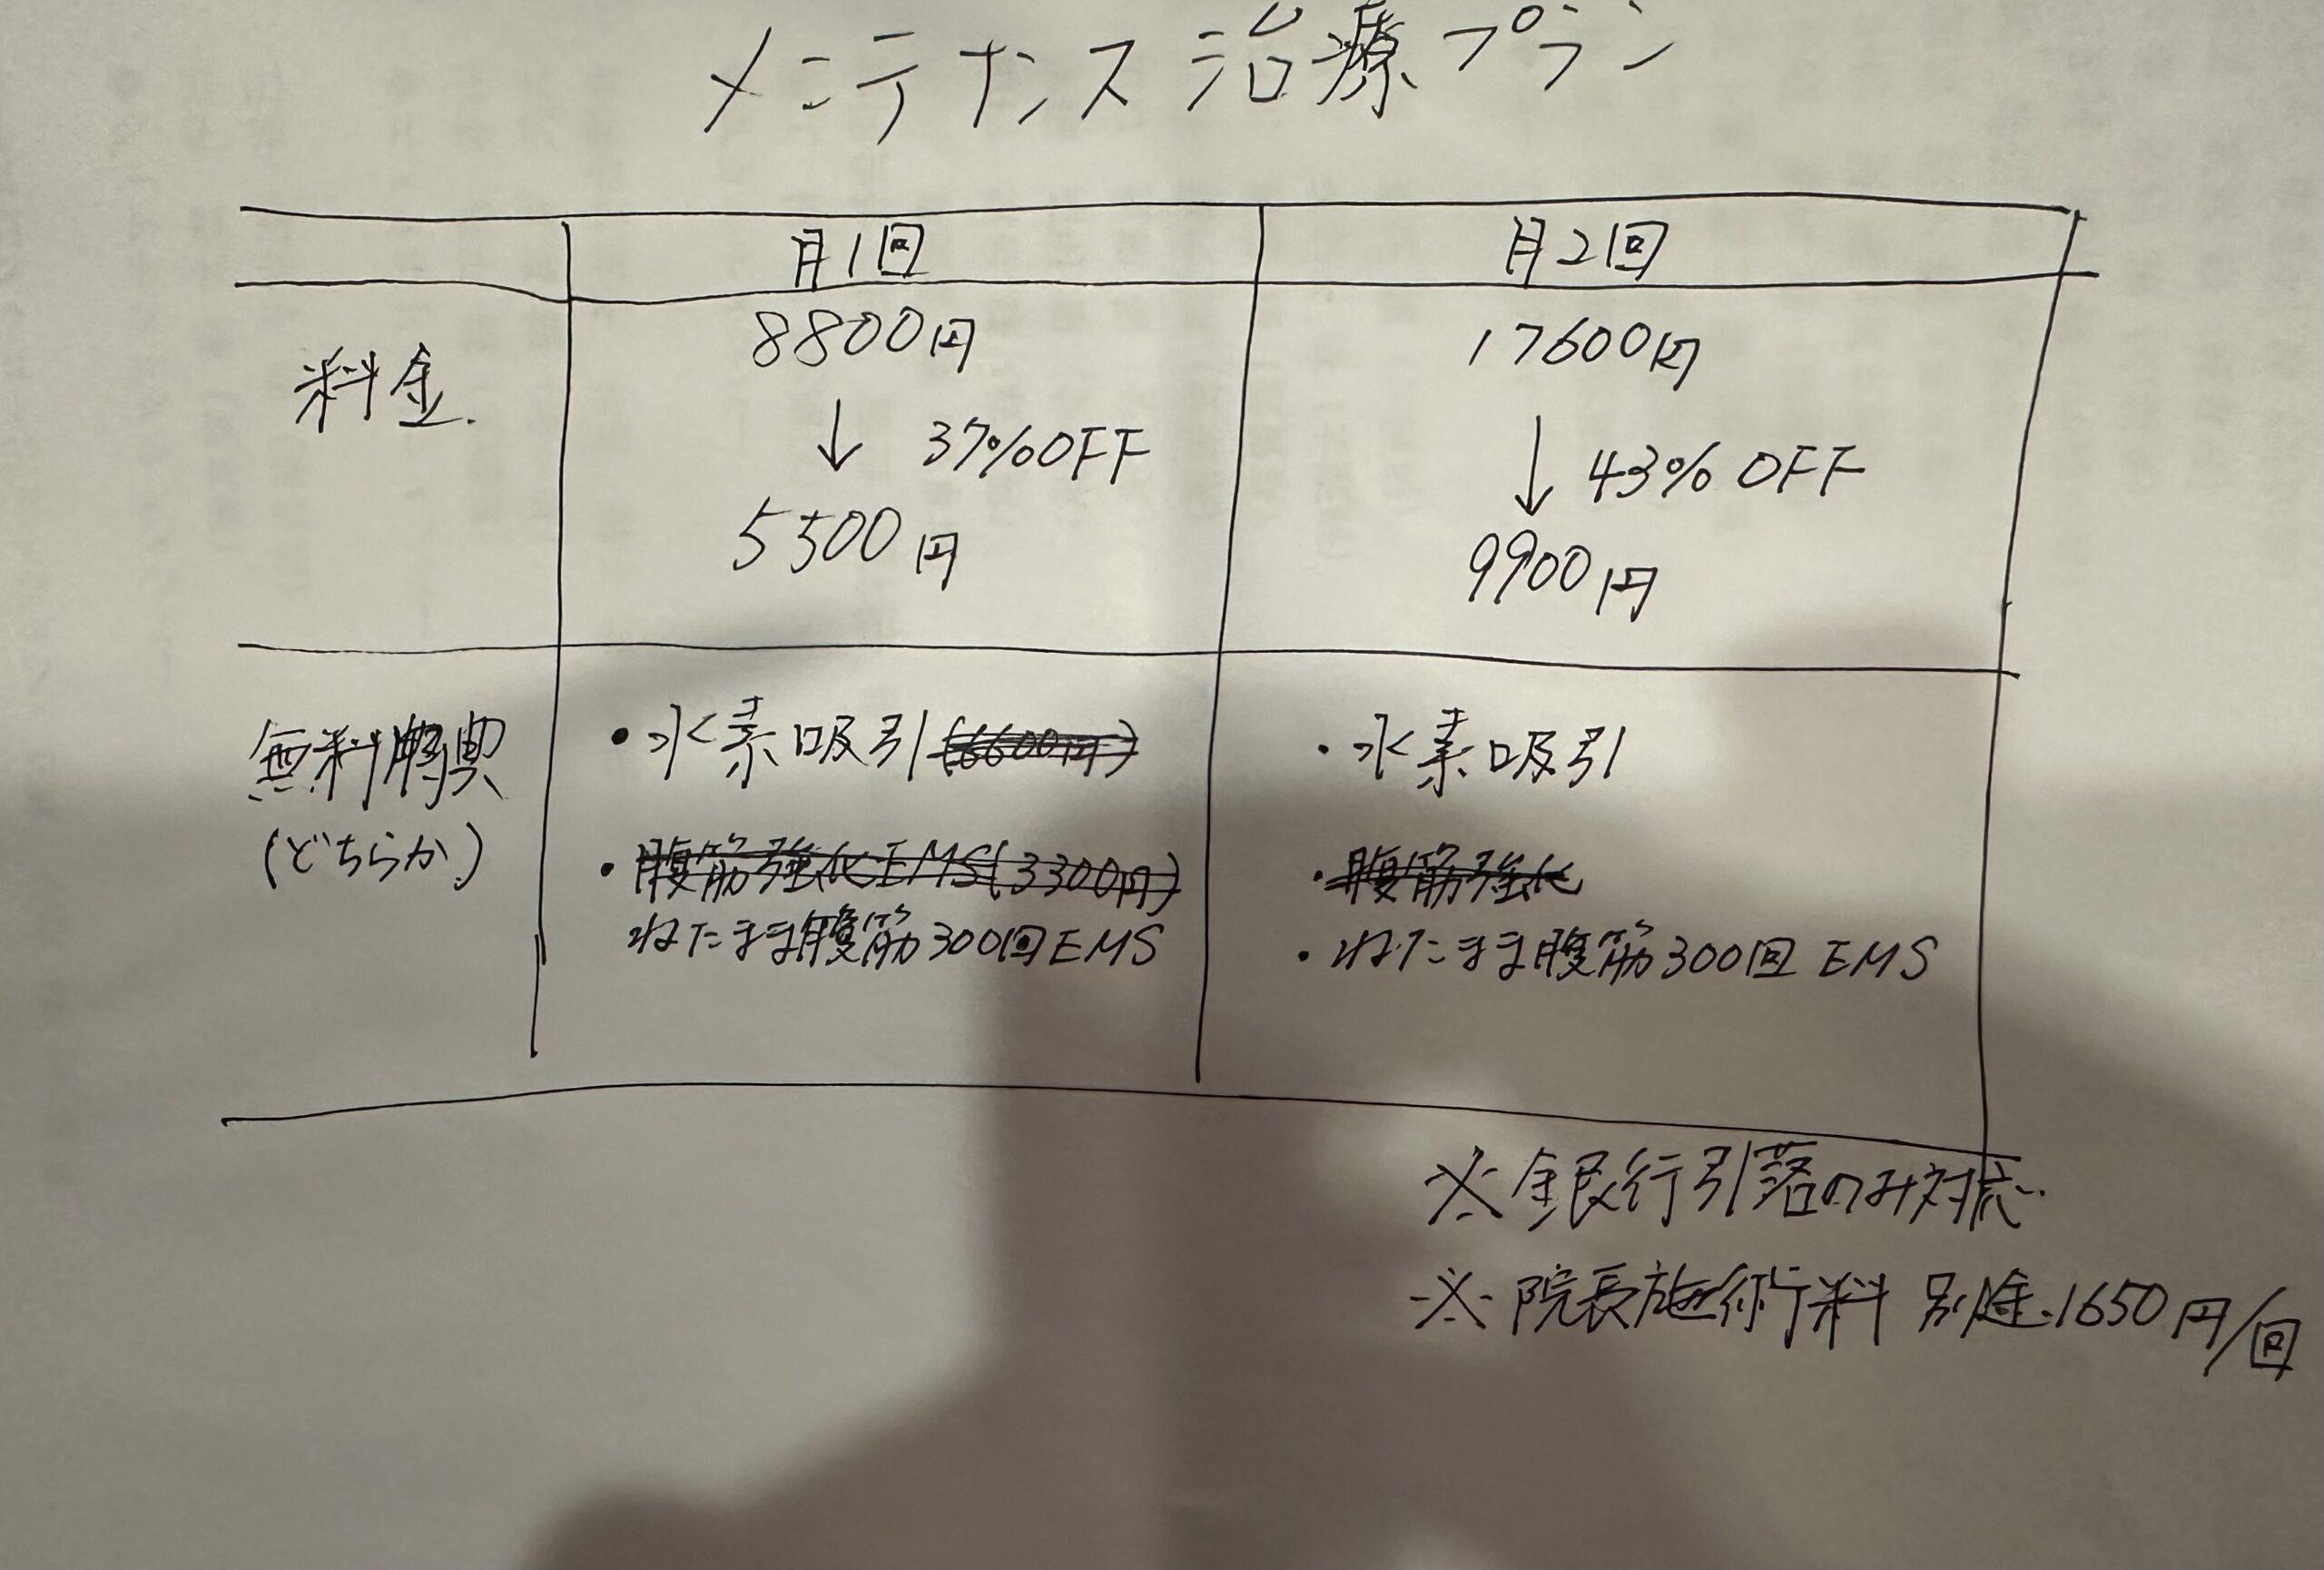 メンテナンス治療プラン
月1回
月2回
料金
8800円
↓ 37%OFF
5500円
17600円
↓ 43% OFF
9900円
無料特典
(どちらか)
・水素吸引(6600円)
・腹筋強化EMS(3300円)
ねたまま腹筋300回EMS
・水素吸引
・腹筋強化
・ねたまま腹筋300回 EMS
※銀行引落のみ対応
※院長施術料 別途1650円/回